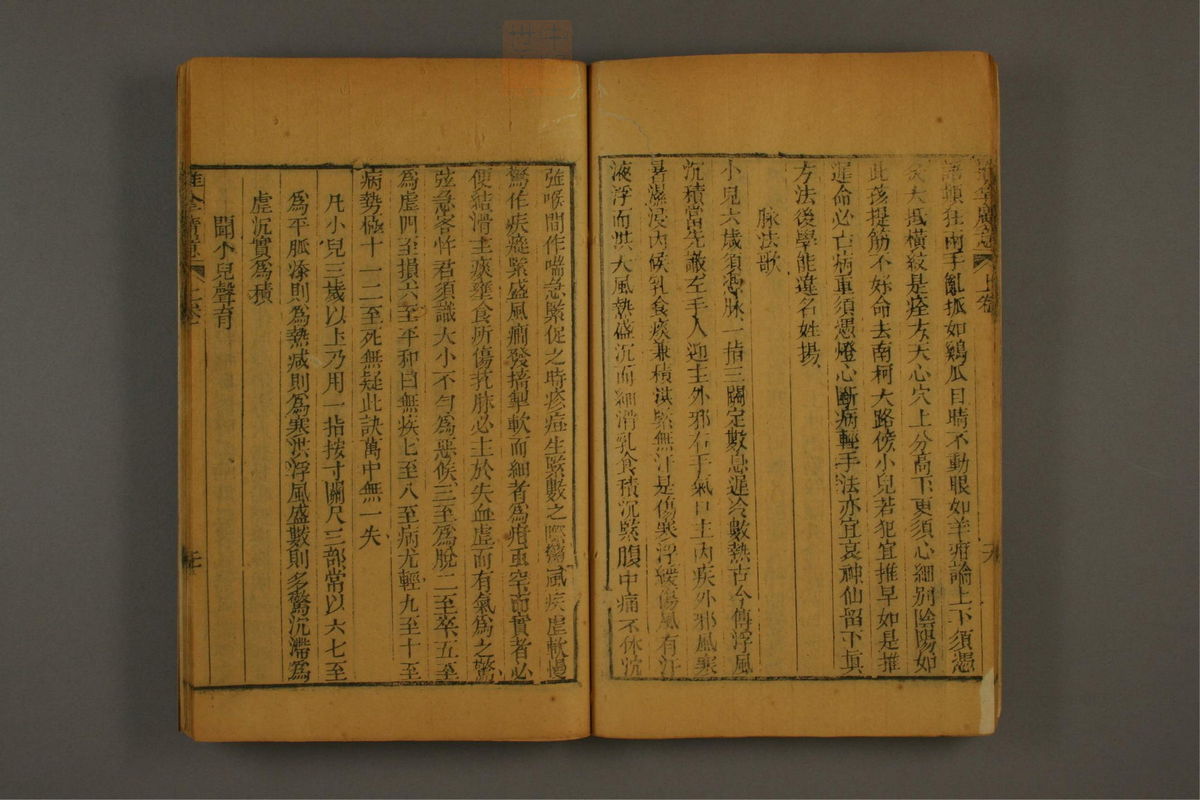 顛狂兩手亂抓如鷄瓜目睛不動眼如羊癇論上下須憑
大抵橫紋是痊方天心穴上分高下更須心細別陰陽如
此莈提筋不好命去南柯大路傍小兒若犯宜推早如是推
遲命必亡病重須憑燈心斷病輕手法亦宜哀神仙留下真
方法後學能違名姓揚
脉法歌
小兒六歲須憑脉一指三關定數息遲冷數熱古今傳浮風
沉積當先識左手人迎主外邪右手氣口主內疾外邪風寒
暑濕浸內候乳食痰兼積洪緊無汗是傷寒浮緩傷風有汗
液浮而洪大風熱盛沉而細滑乳食積沉緊腹中痛不休沉
弦喉間作喘急緊促之時疹痘生緊數之際驚風疾虛軟慢
驚作疾瘛緊盛風癇發搐掣軟而細者為疳虫牢而實者必
便結滑主痰壅食所傷芤脉必主於失血虛而有氣為之驚
弦急客忤君須識大小不勻為惡候三至為脫二至卒五至
為虛四至損六至平和曰無疾七至八至病尤輕九至十至
病勢極十一二至死無疑此訣萬中無一失
凡小兒三歲以上乃用一指按寸關尺三部常以六七至
為平脈添則為熱減則為寒洪浮風盛數則多驚沉滯為
虛沉實為積
聞小兒聲音